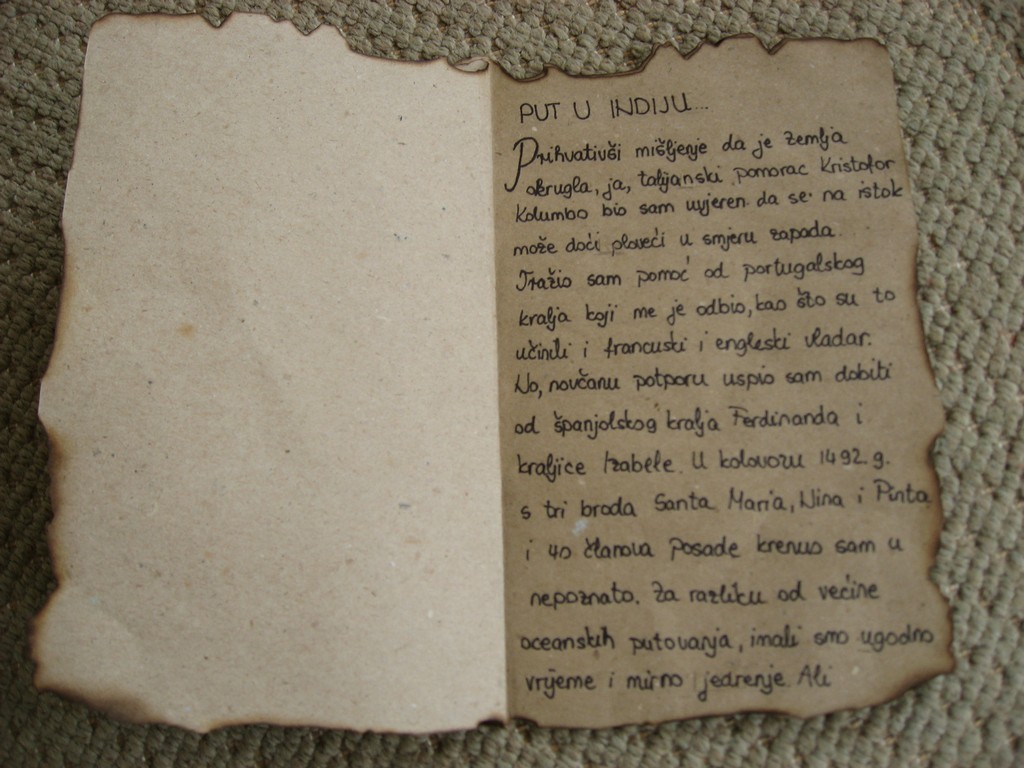 PUT U INDIJU...
Prihvativši mišljenje da je zemlja
okrugla, ja, talijanski pomorac Kristofor
Kolumbo bio sam uvjeren da se na istok
može doći ploveći u smjeru zapada.
Tražio sam pomoć od portugalskog
kralja koji me je odbio, kao što su to
učinili i francuski i engleski vladar.
No, novčanu potporu uspio sam dobiti
od španjolskog kralja Ferdinanda i
kraljice Izabele. U kolovozu 1492. g.
s tri broda Santa Maria, Nina i Pinta
i 40 članova posade krenuo sam u
nepoznato. Za razliku od većine
oceanskih putovanja, imali smo ugodno
vrijeme i mirno jedrenje. Ali